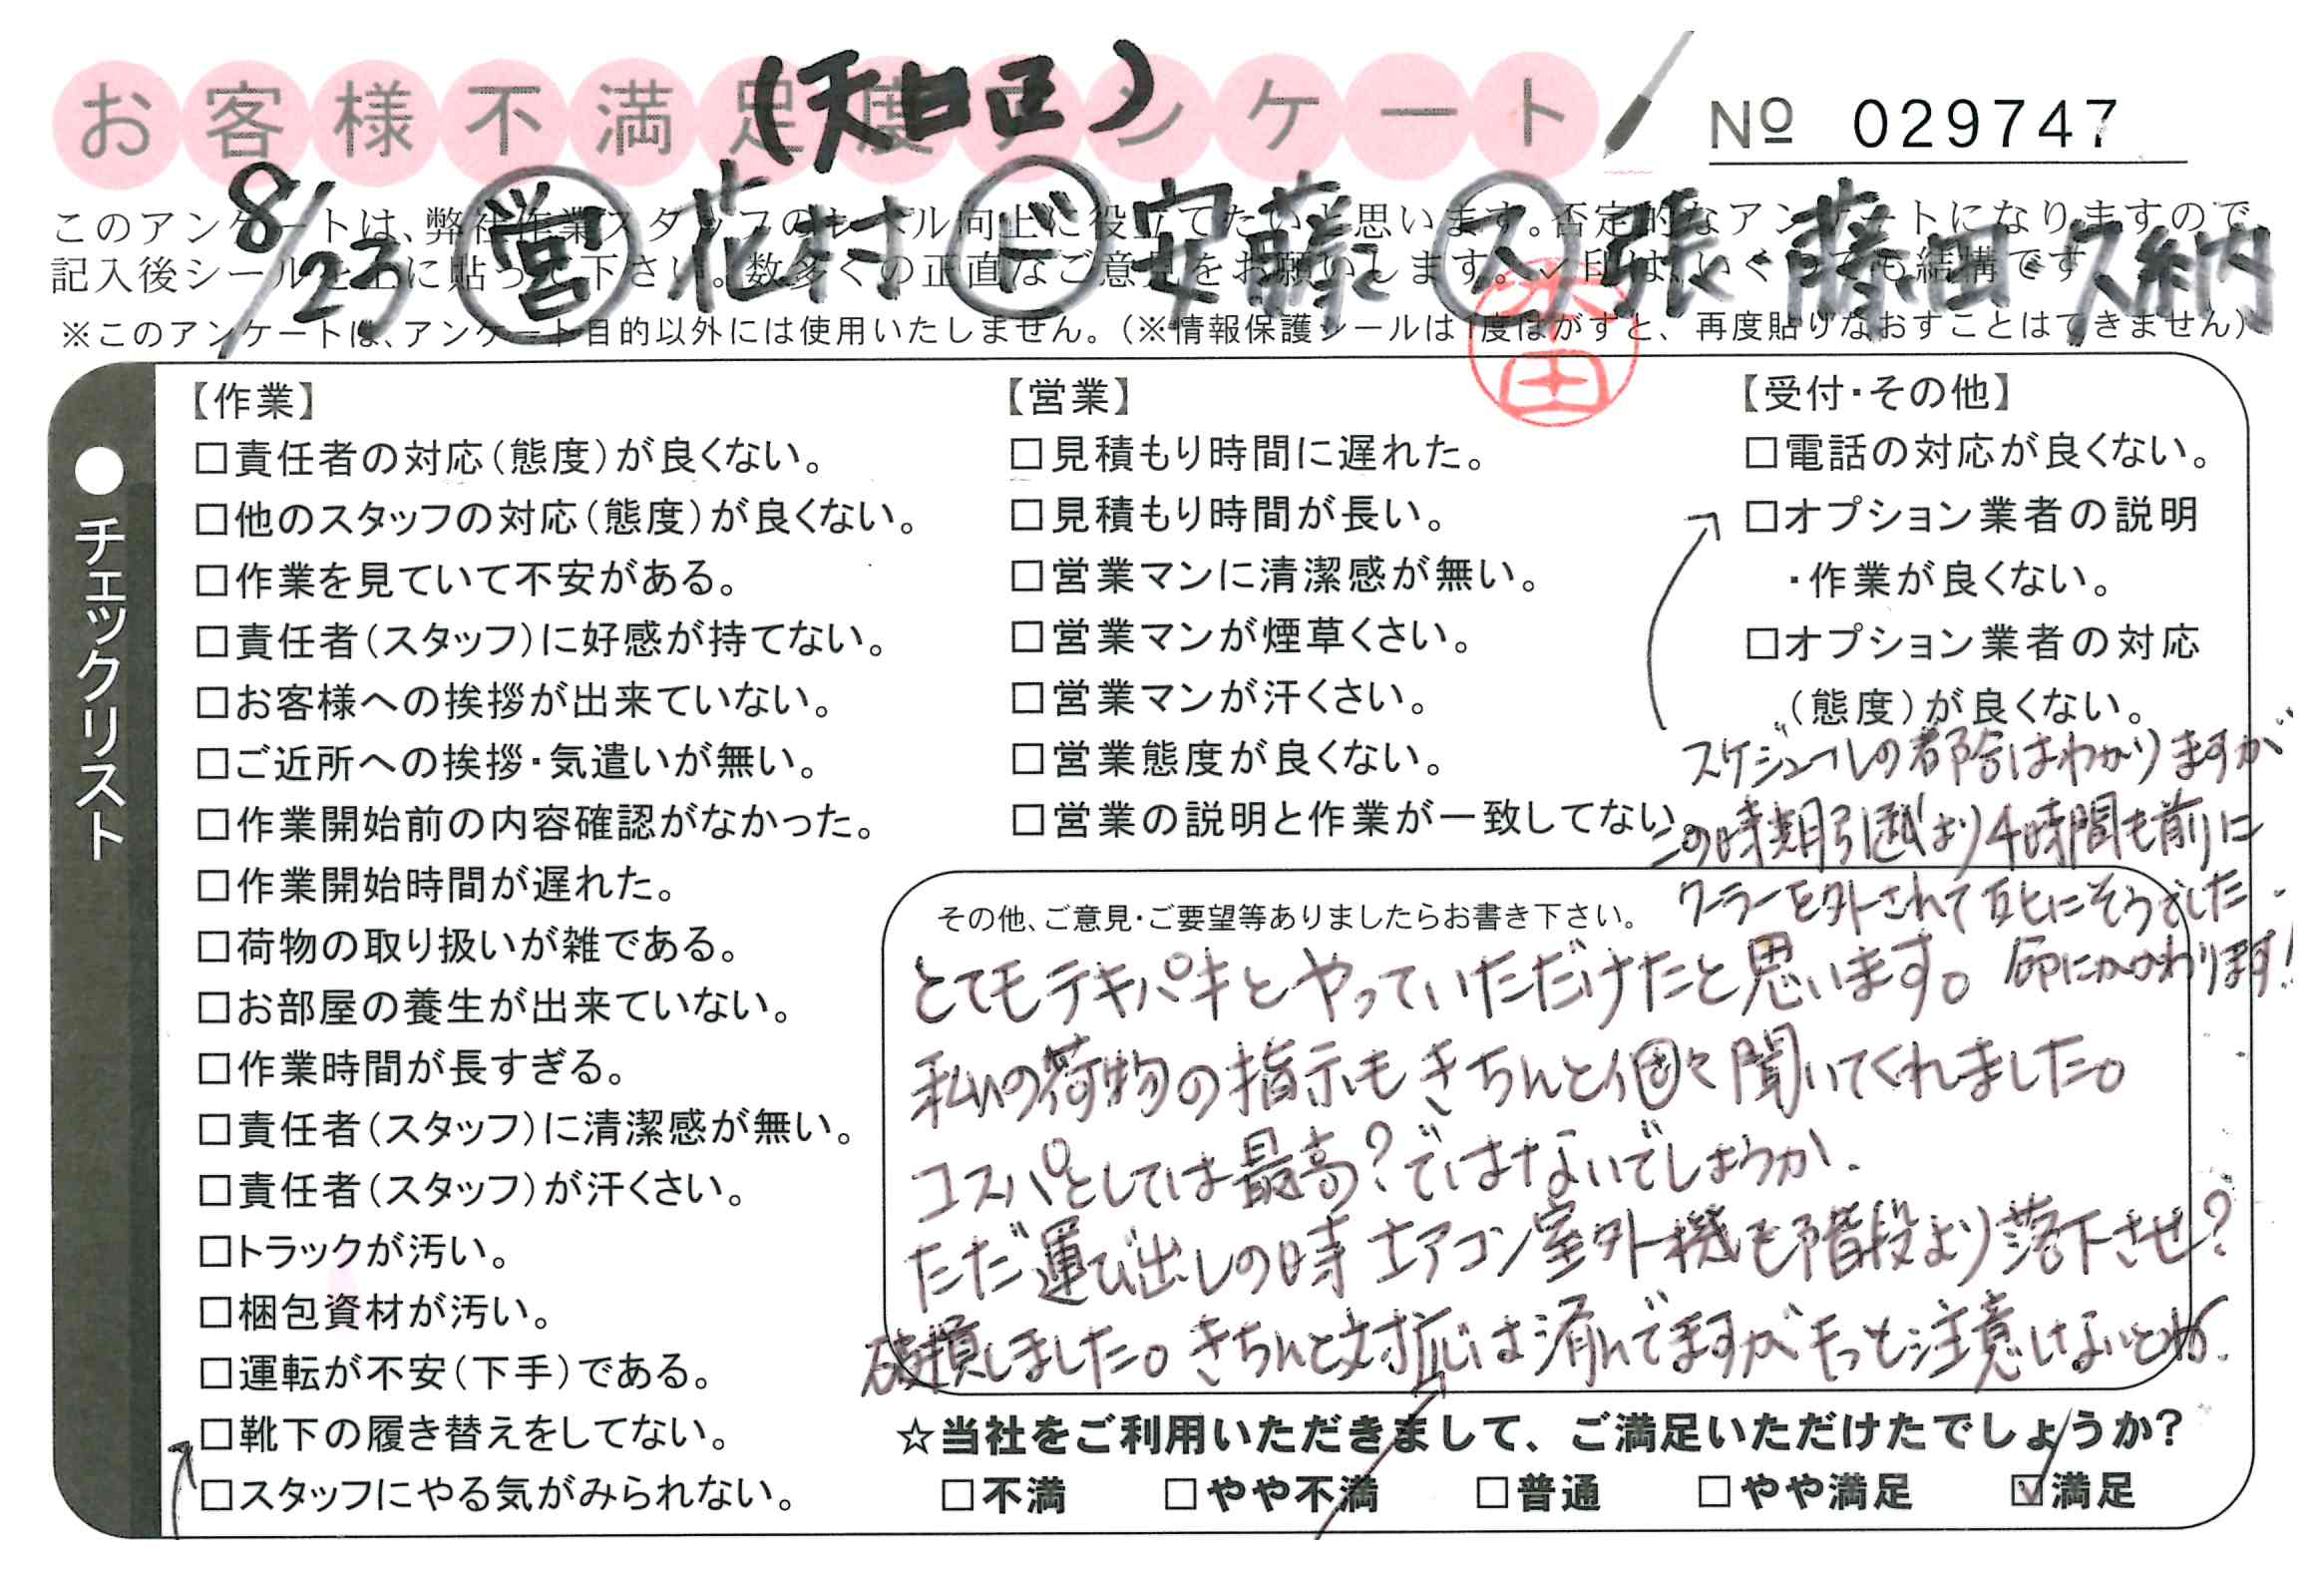 お客様不満足度アンケート
(天白区)
№ 029747
8/23 営 花村 ド 安藤 ス 張・藤田 久納
このアンケートは、弊社作業スタッフのレベル向上に役立てたいと思います。否定的なアンケートになりますので、
記入後シールを上に貼って下さい。数多くの正直なご意見をお願いします。✓印は、いくつでも結構です
※このアンケートは、アンケート目的以外には使用いたしません。（※情報保護シールは1度はがすと、再度貼りなおすことはできません）
●チェックリスト
【作業】
□責任者の対応（態度）が良くない。
□他のスタッフの対応（態度）が良くない。
□作業を見ていて不安がある。
□責任者（スタッフ）に好感が持てない。
□お客様への挨拶が出来ていない。
□ご近所への挨拶・気遣いが無い。
□作業開始前の内容確認がなかった。
□作業開始時間が遅れた。
□荷物の取り扱いが雑である。
□お部屋の養生が出来ていない。
□作業時間が長すぎる。
□責任者（スタッフ）に清潔感が無い。
□責任者（スタッフ）が汗くさい。
□トラックが汚い。
□梱包資材が汚い。
□運転が不安（下手）である。
□靴下の履き替えをしてない。
□スタッフにやる気がみられない。
【営業】
□見積もり時間に遅れた。
□見積もり時間が長い。
□営業マンに清潔感が無い。
□営業マンが煙草くさい。
□営業マンが汗くさい。
□営業態度が良くない。
□営業の説明と作業が一致してない。
【受付・その他】
□電話の対応が良くない。
□オプション業者の説明
・作業が良くない。
□オプション業者の対応
（態度）が良くない。
スケジュールの都合はわかりますが
この時期引越より4時間も前に
クーラーを外されて死にそうでした.
命にかかわります!
その他、ご意見・ご要望等ありましたらお書き下さい。
とてもテキパキとやっていただけたと思います。
私の荷物の指示もきちんと個々聞いてくれました。
コスパとしては最高?ではないでしょうか.
ただ運び出しの時エアコン室外機を階段より落下させ?
破損しました。きちんと対応は済んでますがもっと注意しないとね.
☆当社をご利用いただきまして、ご満足いただけたでしょうか？
□不満 □やや不満 □普通 □やや満足 ☑満足